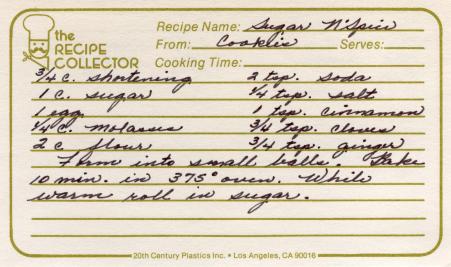 the RECIPE COLLECTOR
Recipe Name: Sugar N'Spice
From: Cookies Serves:
Cooking Time:
3/4 c. shortening 2 tsp. soda
1 c. sugar 1/4 tsp. salt
1 egg 1 tsp. cinnamon
1/4 c. molasses 3/4 tsp. cloves
2 c flour 3/4 tsp. ginger
Form into small balls. Bake
10 min. in 375° oven. While
warm roll in sugar.
20th Century Plastics Inc. • Los Angeles, CA 90016